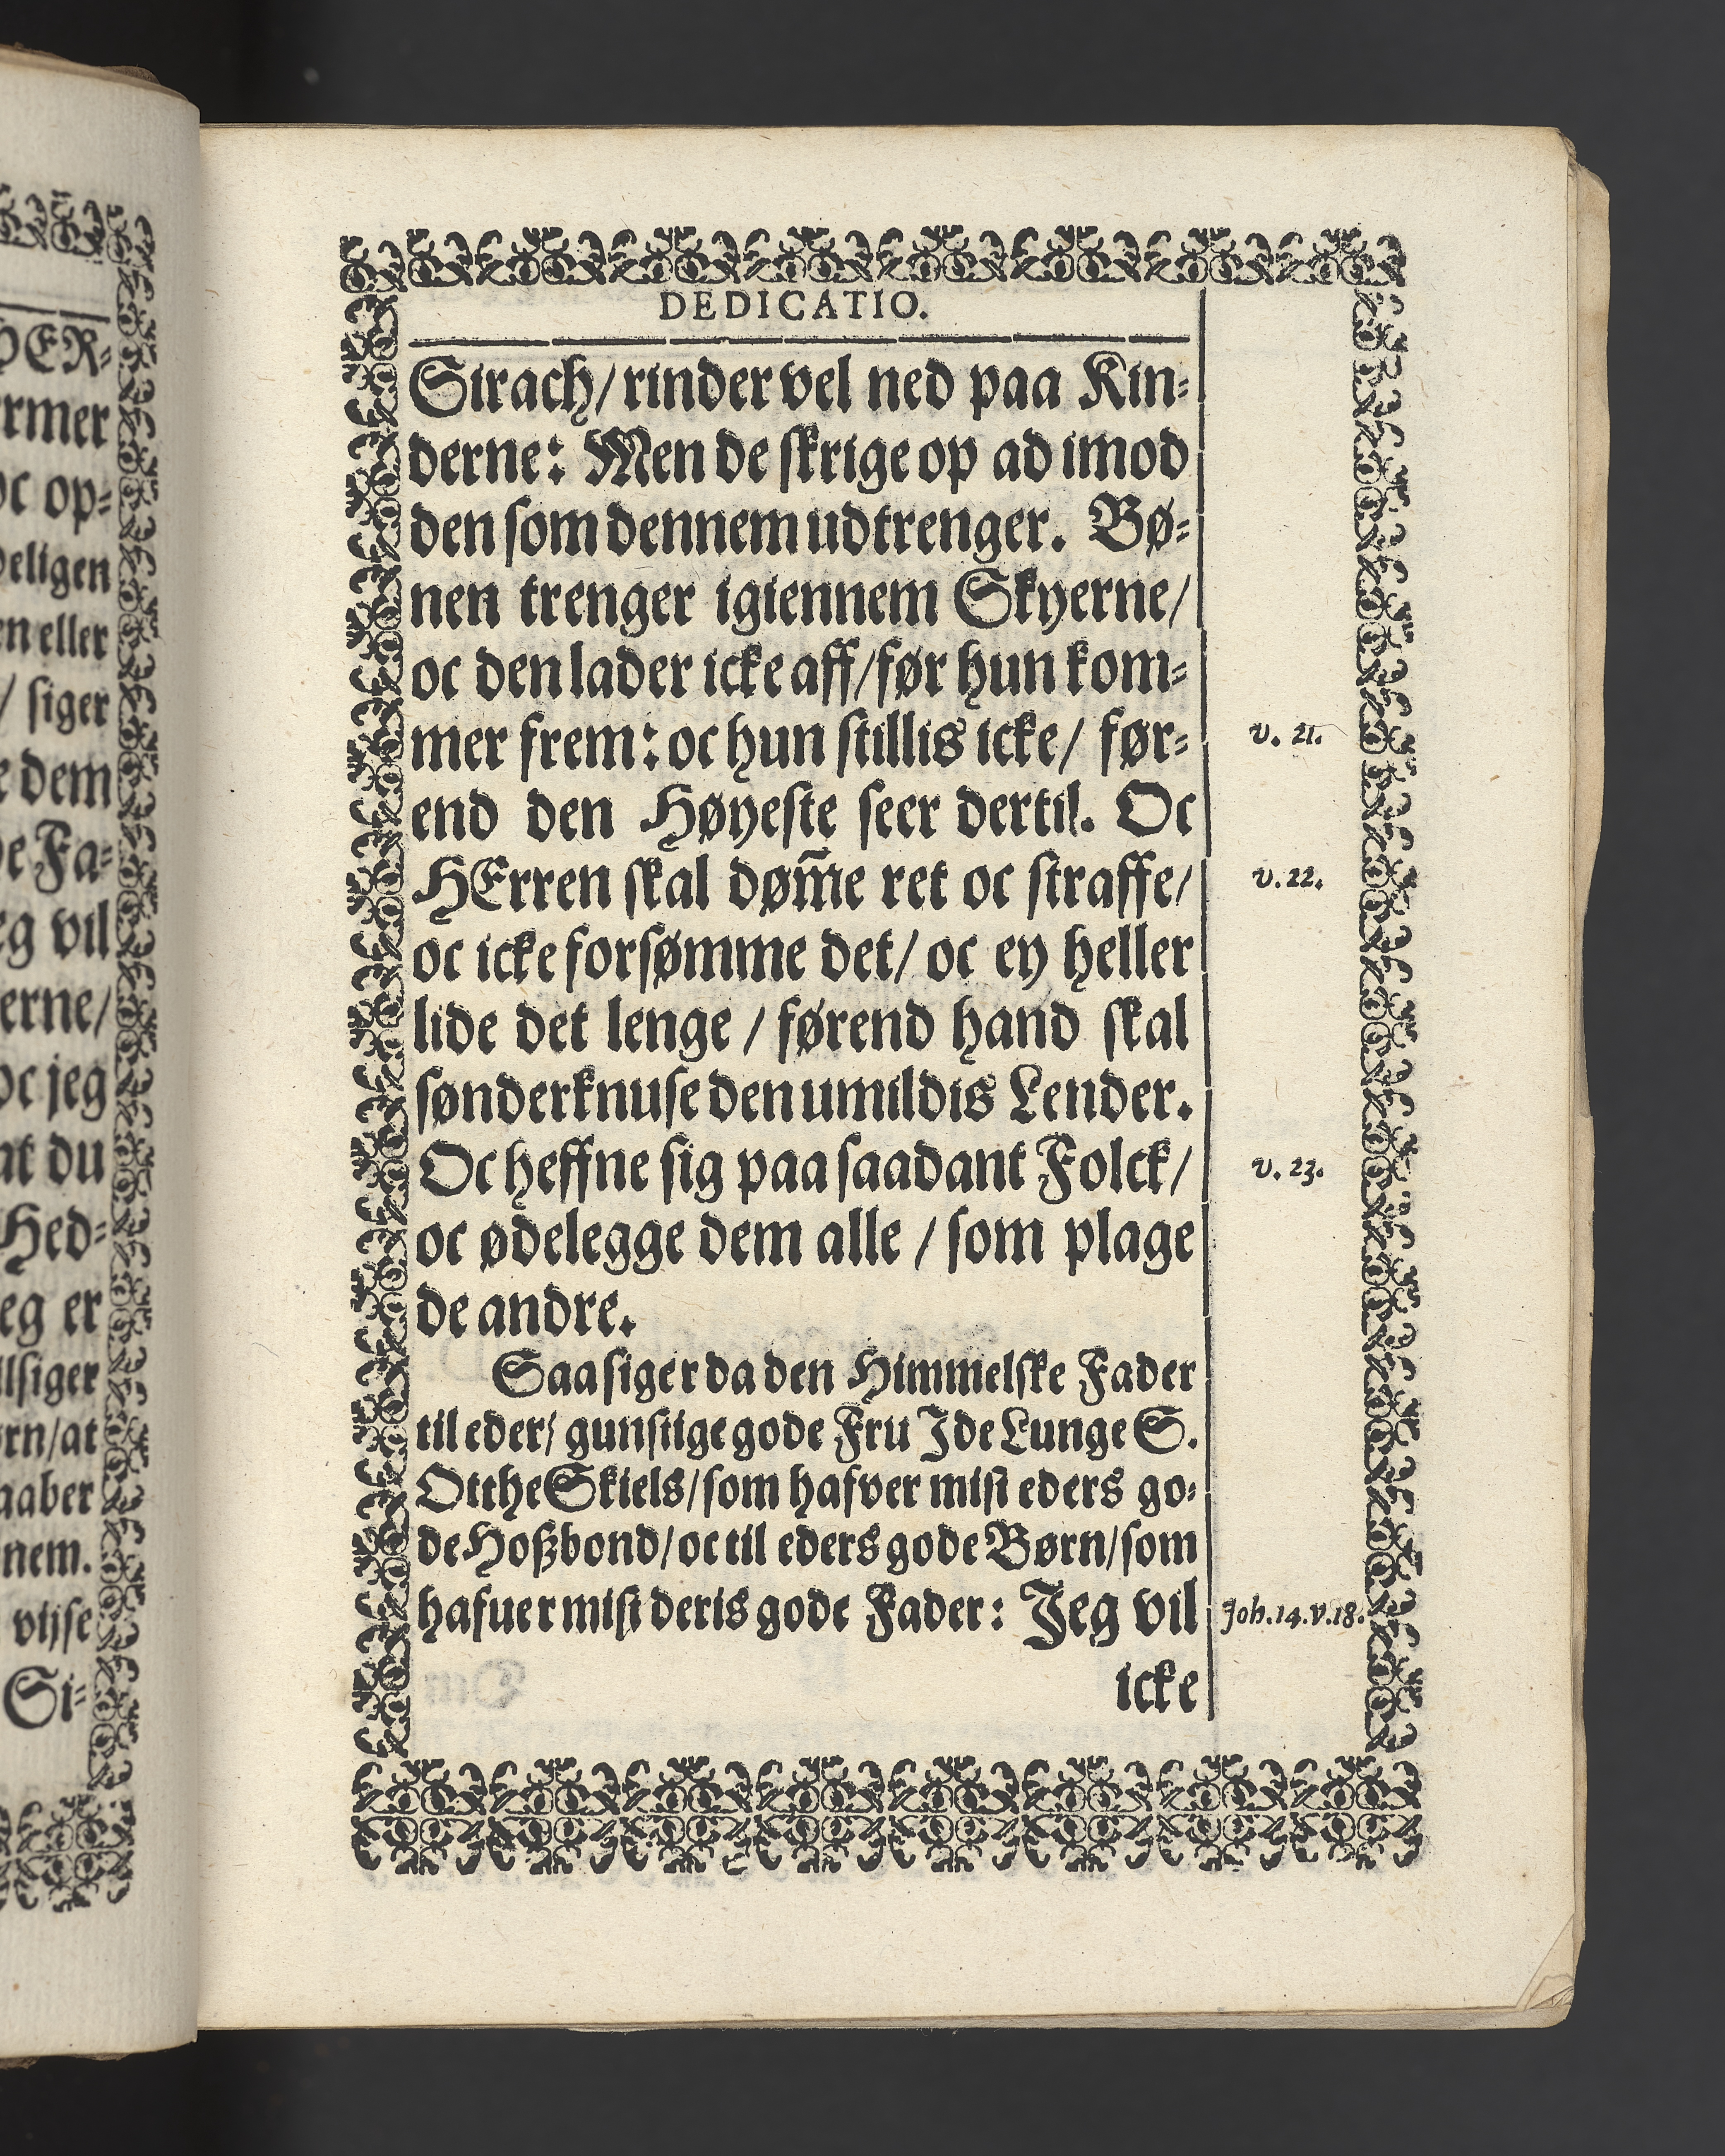 HER-
rmer
oc op-
deligen
en eller
/ siger
e dem
de Fa-
eg vil
erne/
oc jeg
at du
Hed-
eg er
lsiger
ørn/at
aaber
nem.
vijse
Si-
DEDICATIO.
Sirach/ rinder vel ned paa Kin-
derne: Men de skrige op ad imod
den som dennem udtrenger. Bø-
nen trenger igiennem Skyerne/
oc den lader icke aff/før hun kom-
mer frem: oc hun stillis icke/ før-
v. 21.
end den Høyeste seer dertil. Oc
HErren skal døm̅e ret oc straffe/
v. 22.
oc icke forsømme det/ oc ey heller
lide det lenge / førend hand skal
sønderknuse den umildis Lender.
Oc heffne sig paa saadant Folck/
v. 23.
oc ødelegge dem alle / som plage
de andre.
Saa siger da den Himmelske Fader
til eder/ gunstige gode Fru Ide Lunge S.
Otthe Skiels/ som hafver mist eders go-
de Hoßbond/ oc til eders gode Børn/ som
hafuer mist deris gode Fader: Jeg vil
Joh. 14. v. 18.
icke